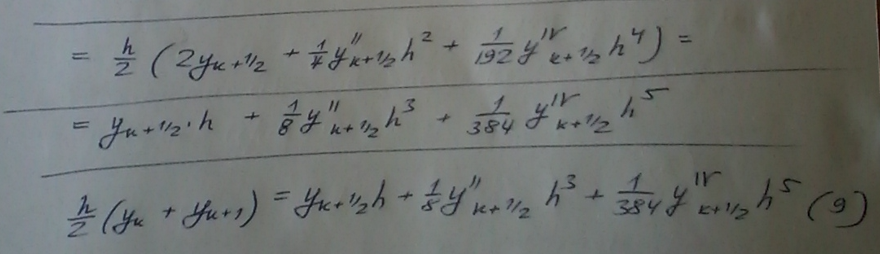 = h/2 (2y_{k+1/2} + 1/4 y''_{k+1/2} h^2 + 1/192 y^{IV}_{k+1/2} h^4) =
= y_{k+1/2} · h + 1/8 y''_{k+1/2} h^3 + 1/384 y^{IV}_{k+1/2} h^5
h/2 (y_k + y_{k+1}) = y_{k+1/2} h + 1/8 y''_{k+1/2} h^3 + 1/384 y^{IV}_{k+1/2} h^5 (9)